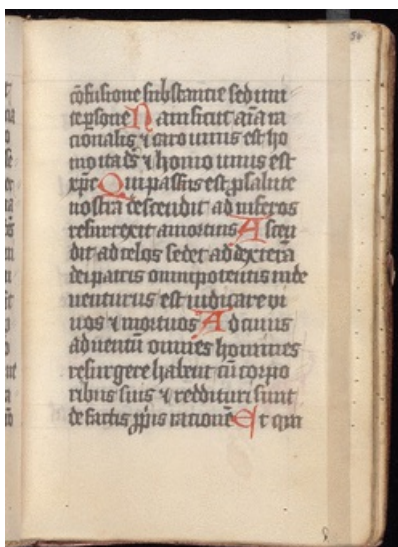 54
cōfusione substantie sed uni
te psone Nam sicut aīa ra
cionalis ⁊ caro unus est ho
mo ita dš ⁊ homo unus est
xp̄c Qui passus est p salute
nostra descendit ad inferos
resurrexit a mortuis Ascen
dit ad celos sedet ad dexterā
dei patris omnipotentis inde
uenturus est iudicare vi
uos ⁊ mortuos Ad cuius
aduentū omnes homines
resurgere habent cū corpo
ribus suis ⁊ reddituri sunt
de factis ppiis rationē Et qui